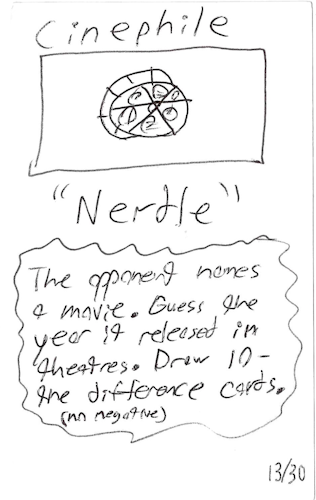 Cinephile
"Nerdle"
The opponent names
a movie. Guess the
year it released in
theatres. Draw 10-
the difference cards.
(nn negative)
13/30